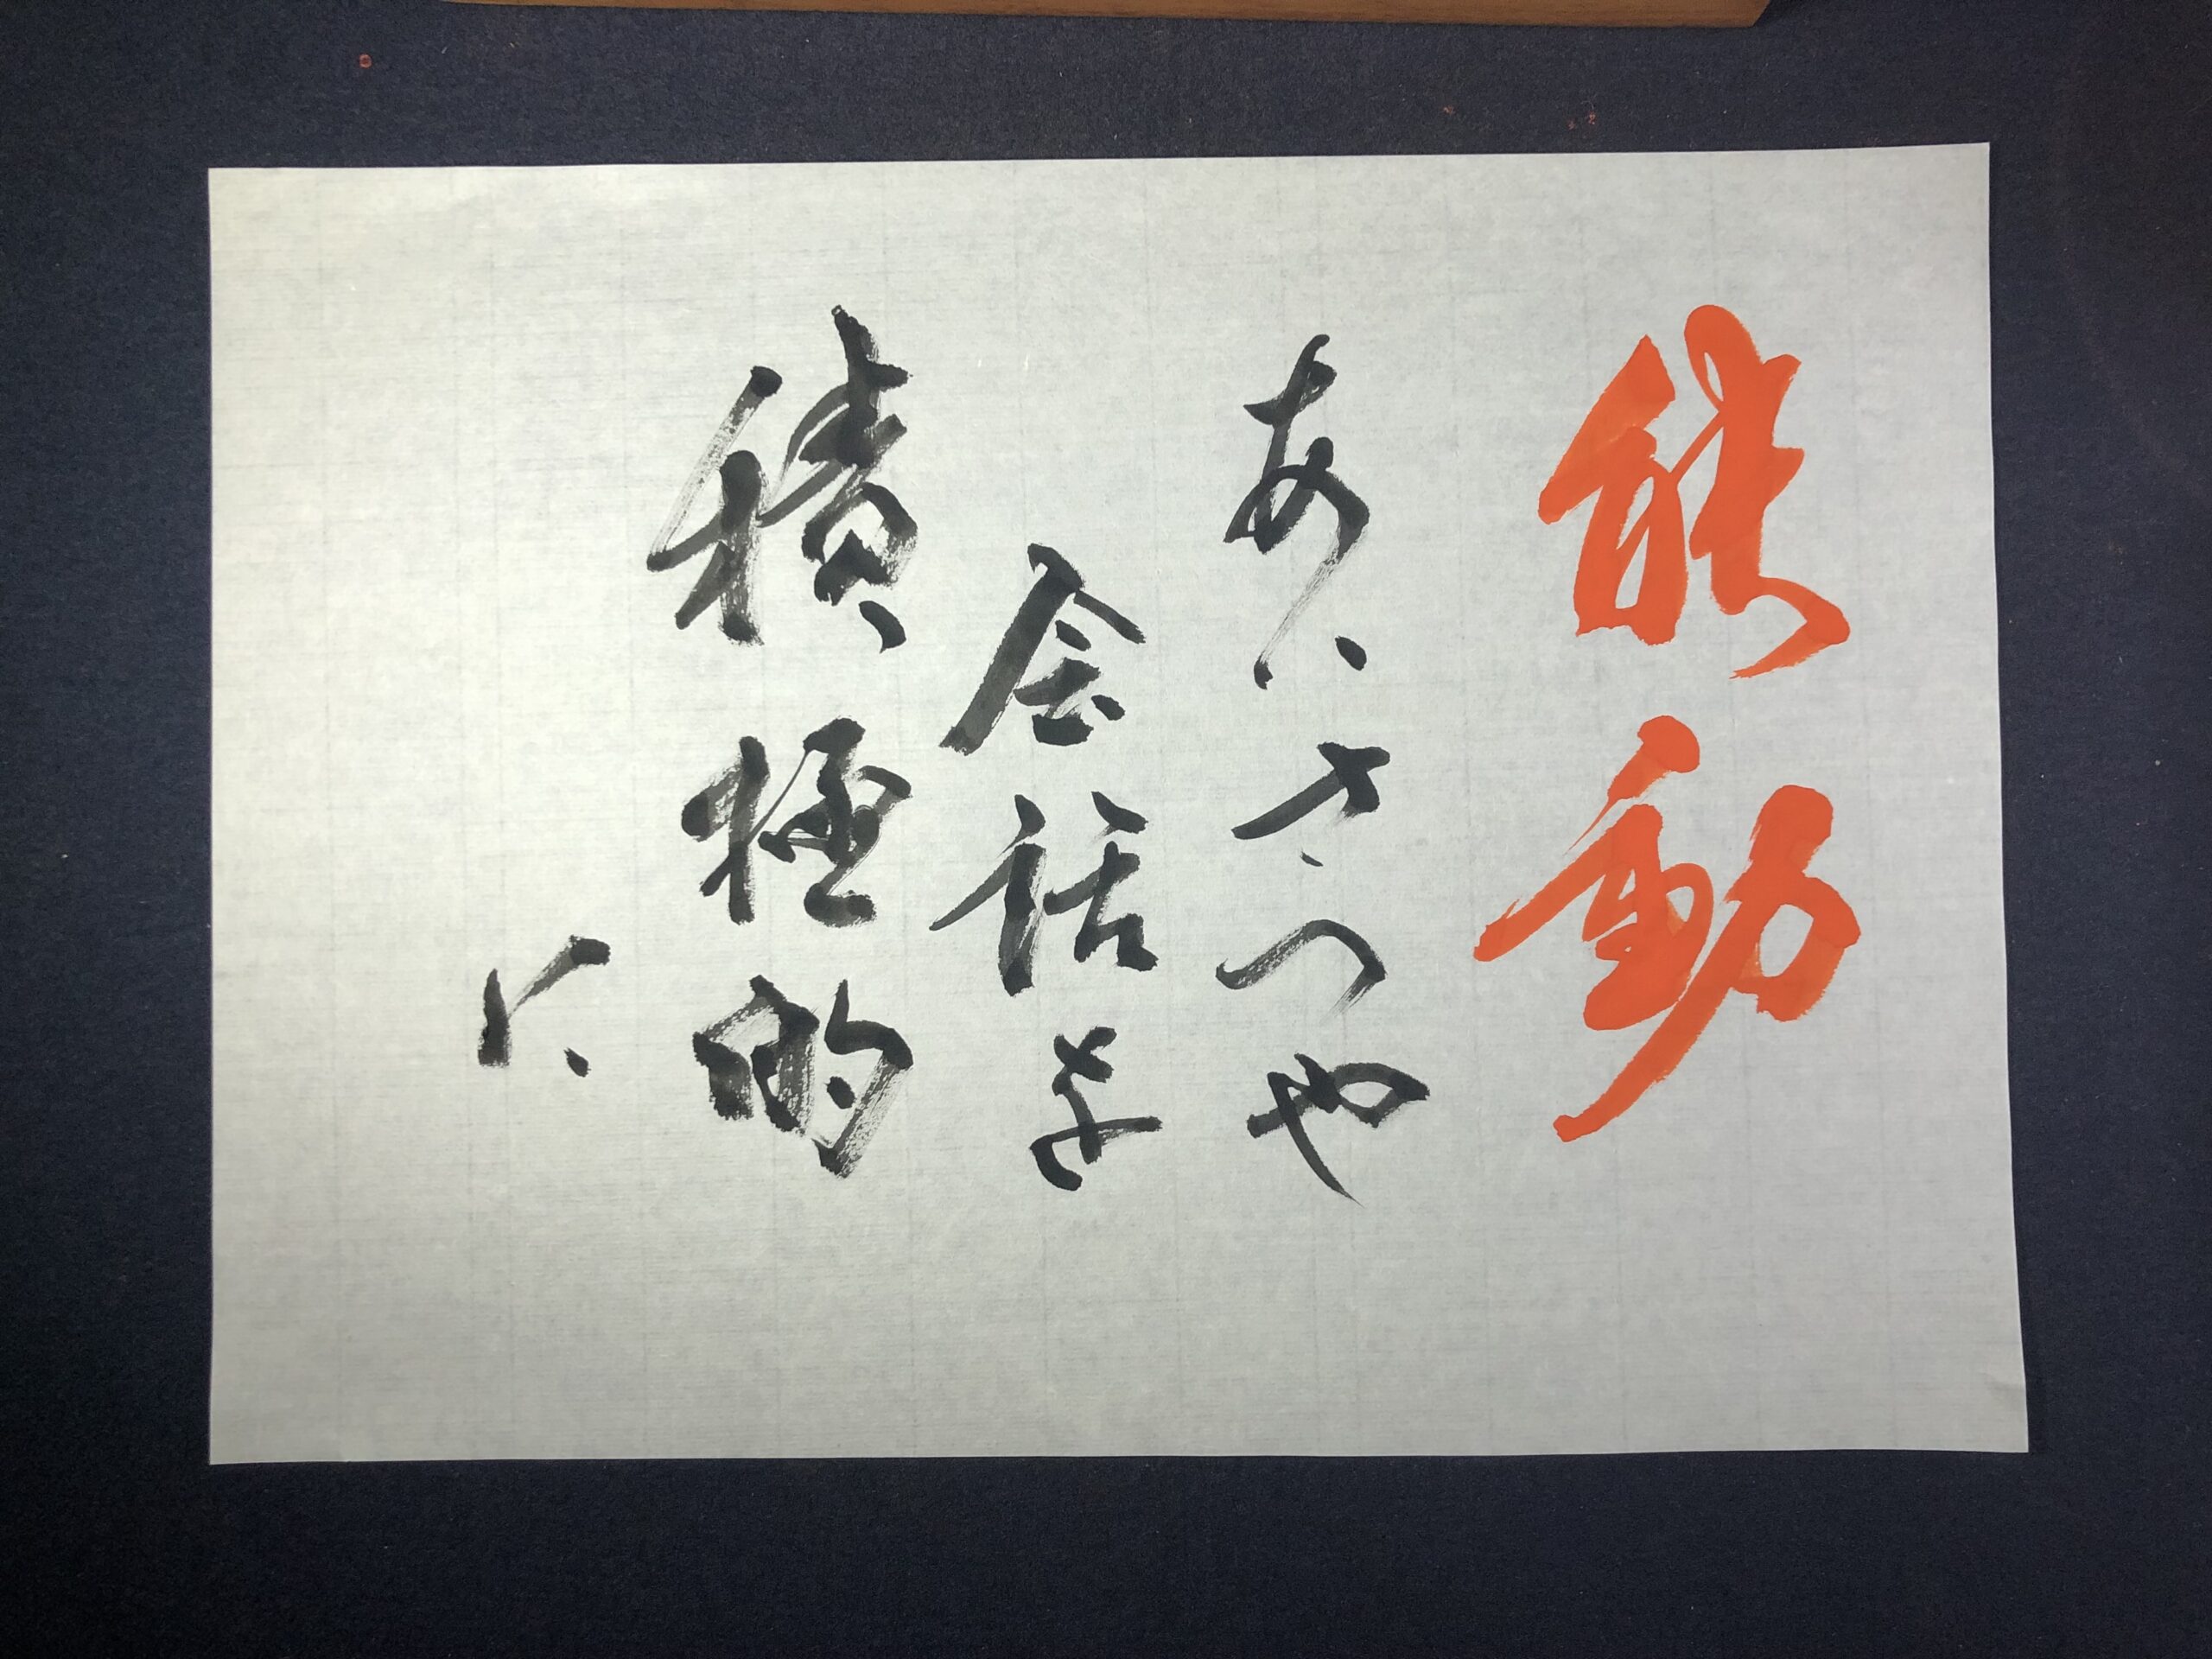 能動
あいさつや
会話を
積極的
に